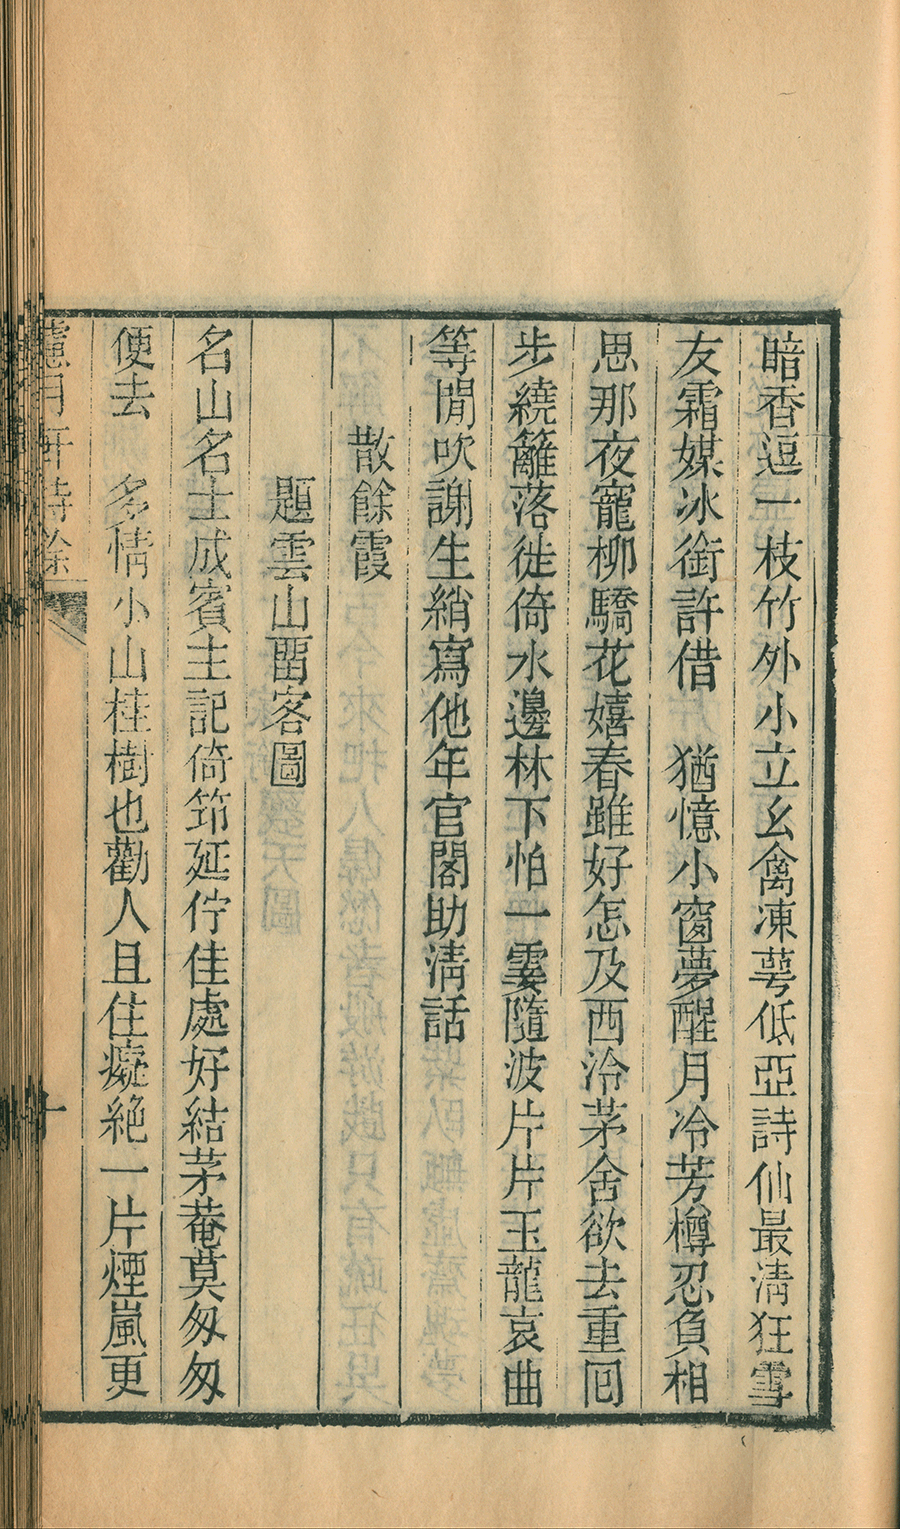 暗香逗一枝竹外小立幺禽凍萼低亞詩仙最淸狂雪
友霜媒冰銜許借　猶憶小窗夢醒月冷芳樽忍負相
思那夜寵柳驕花嬉春雖好怎及西泠茅舍欲去重囘
步繞籬落徙倚水邊林下怕一霎隨波片片玉龍哀曲
等閒吹謝生綃寫他年官閣助淸話
散餘霞
題雲山畱客圖
名山名士成賓主記倚笻延佇佳處好結茅菴莫匆匆
便去　多情小山桂樹也勸人且住癡絕一片煙嵐更
月軒詩餘
十